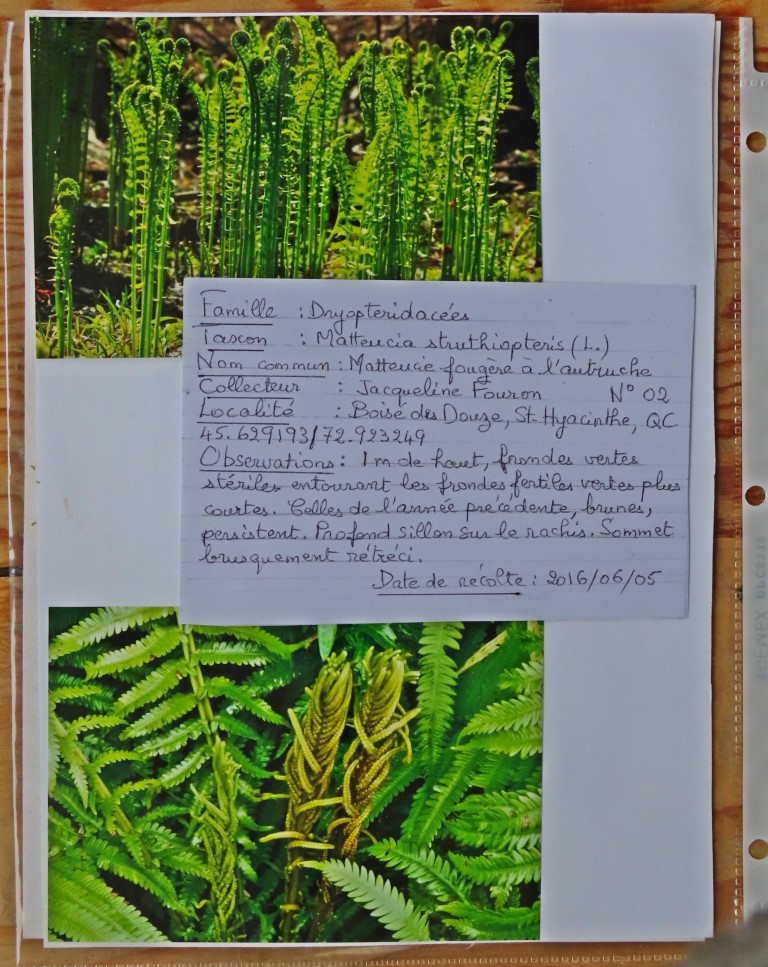 Famille : Dryopteridacées
Taxon : Matteucia struthiopteris (L.)
Nom commun : Matteucie fougère à l'autruche
Collecteur : Jacqueline Fouron N° 02
Localité : Boisé des Douze, St-Hyacinthe, QC
45.629193/72.923249
Observations : 1m de haut, frondes vertes
stériles entourant les frondes fertiles vertes plus
courtes. Celles de l'année précédente, brunes,
persistent. Profond sillon sur le rachis. Sommet
brusquement rétréci.
Date de récolte : 2016/06/05